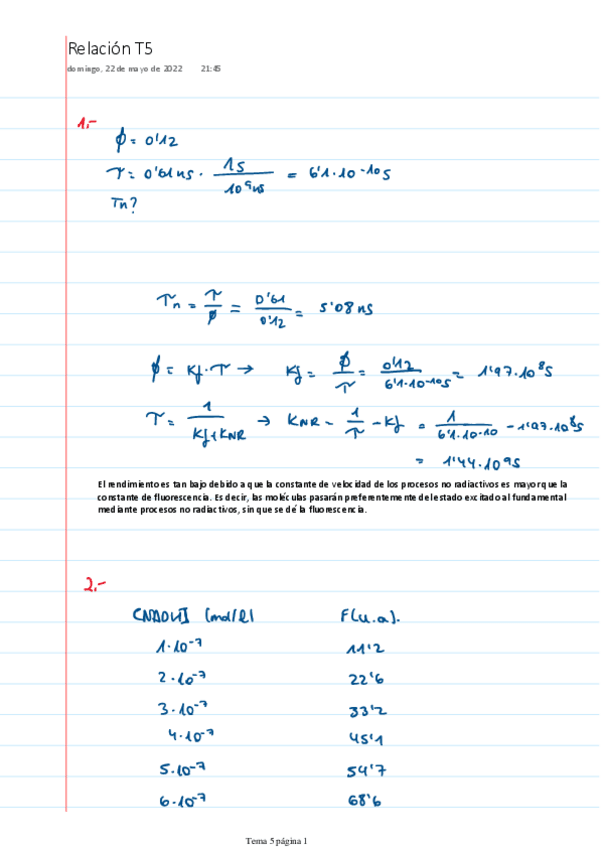 Relación T5
domingo, 22 de mayo de 2022 21:45
1.-
ϕ = 0'12
τ = 0'61 ns · 1s / 10⁹ ns = 6'1·10⁻¹⁰ s
τn?
τn = τ/ϕ = 0'61/0'12 = 5'08 ns
ϕ = Kf·τ → Kf = ϕ/τ = 0'12/6'1·10⁻¹⁰s = 1'97·10⁸s
τ = 1/(Kf+KNR) → KNR = 1/τ - Kf = 1/6'1·10⁻¹⁰ - 1'97·10⁸s
= 1'44·10⁹s
El rendimiento es tan bajo debido a que la constante de velocidad de los procesos no radiactivos es mayor que la
constante de fluorescencia. Es decir, las moléculas pasarán preferentemente del estado excitado al fundamental
mediante procesos no radiactivos, sin que se dé la fluorescencia.
2.-
[NADH] (mol/l) F(u.a).
1·10⁻⁷ 11'2
2·10⁻⁷ 22'6
3·10⁻⁷ 33'2
4·10⁻⁷ 45'1
5·10⁻⁷ 54'7
6·10⁻⁷ 68'6
Tema 5 página 1